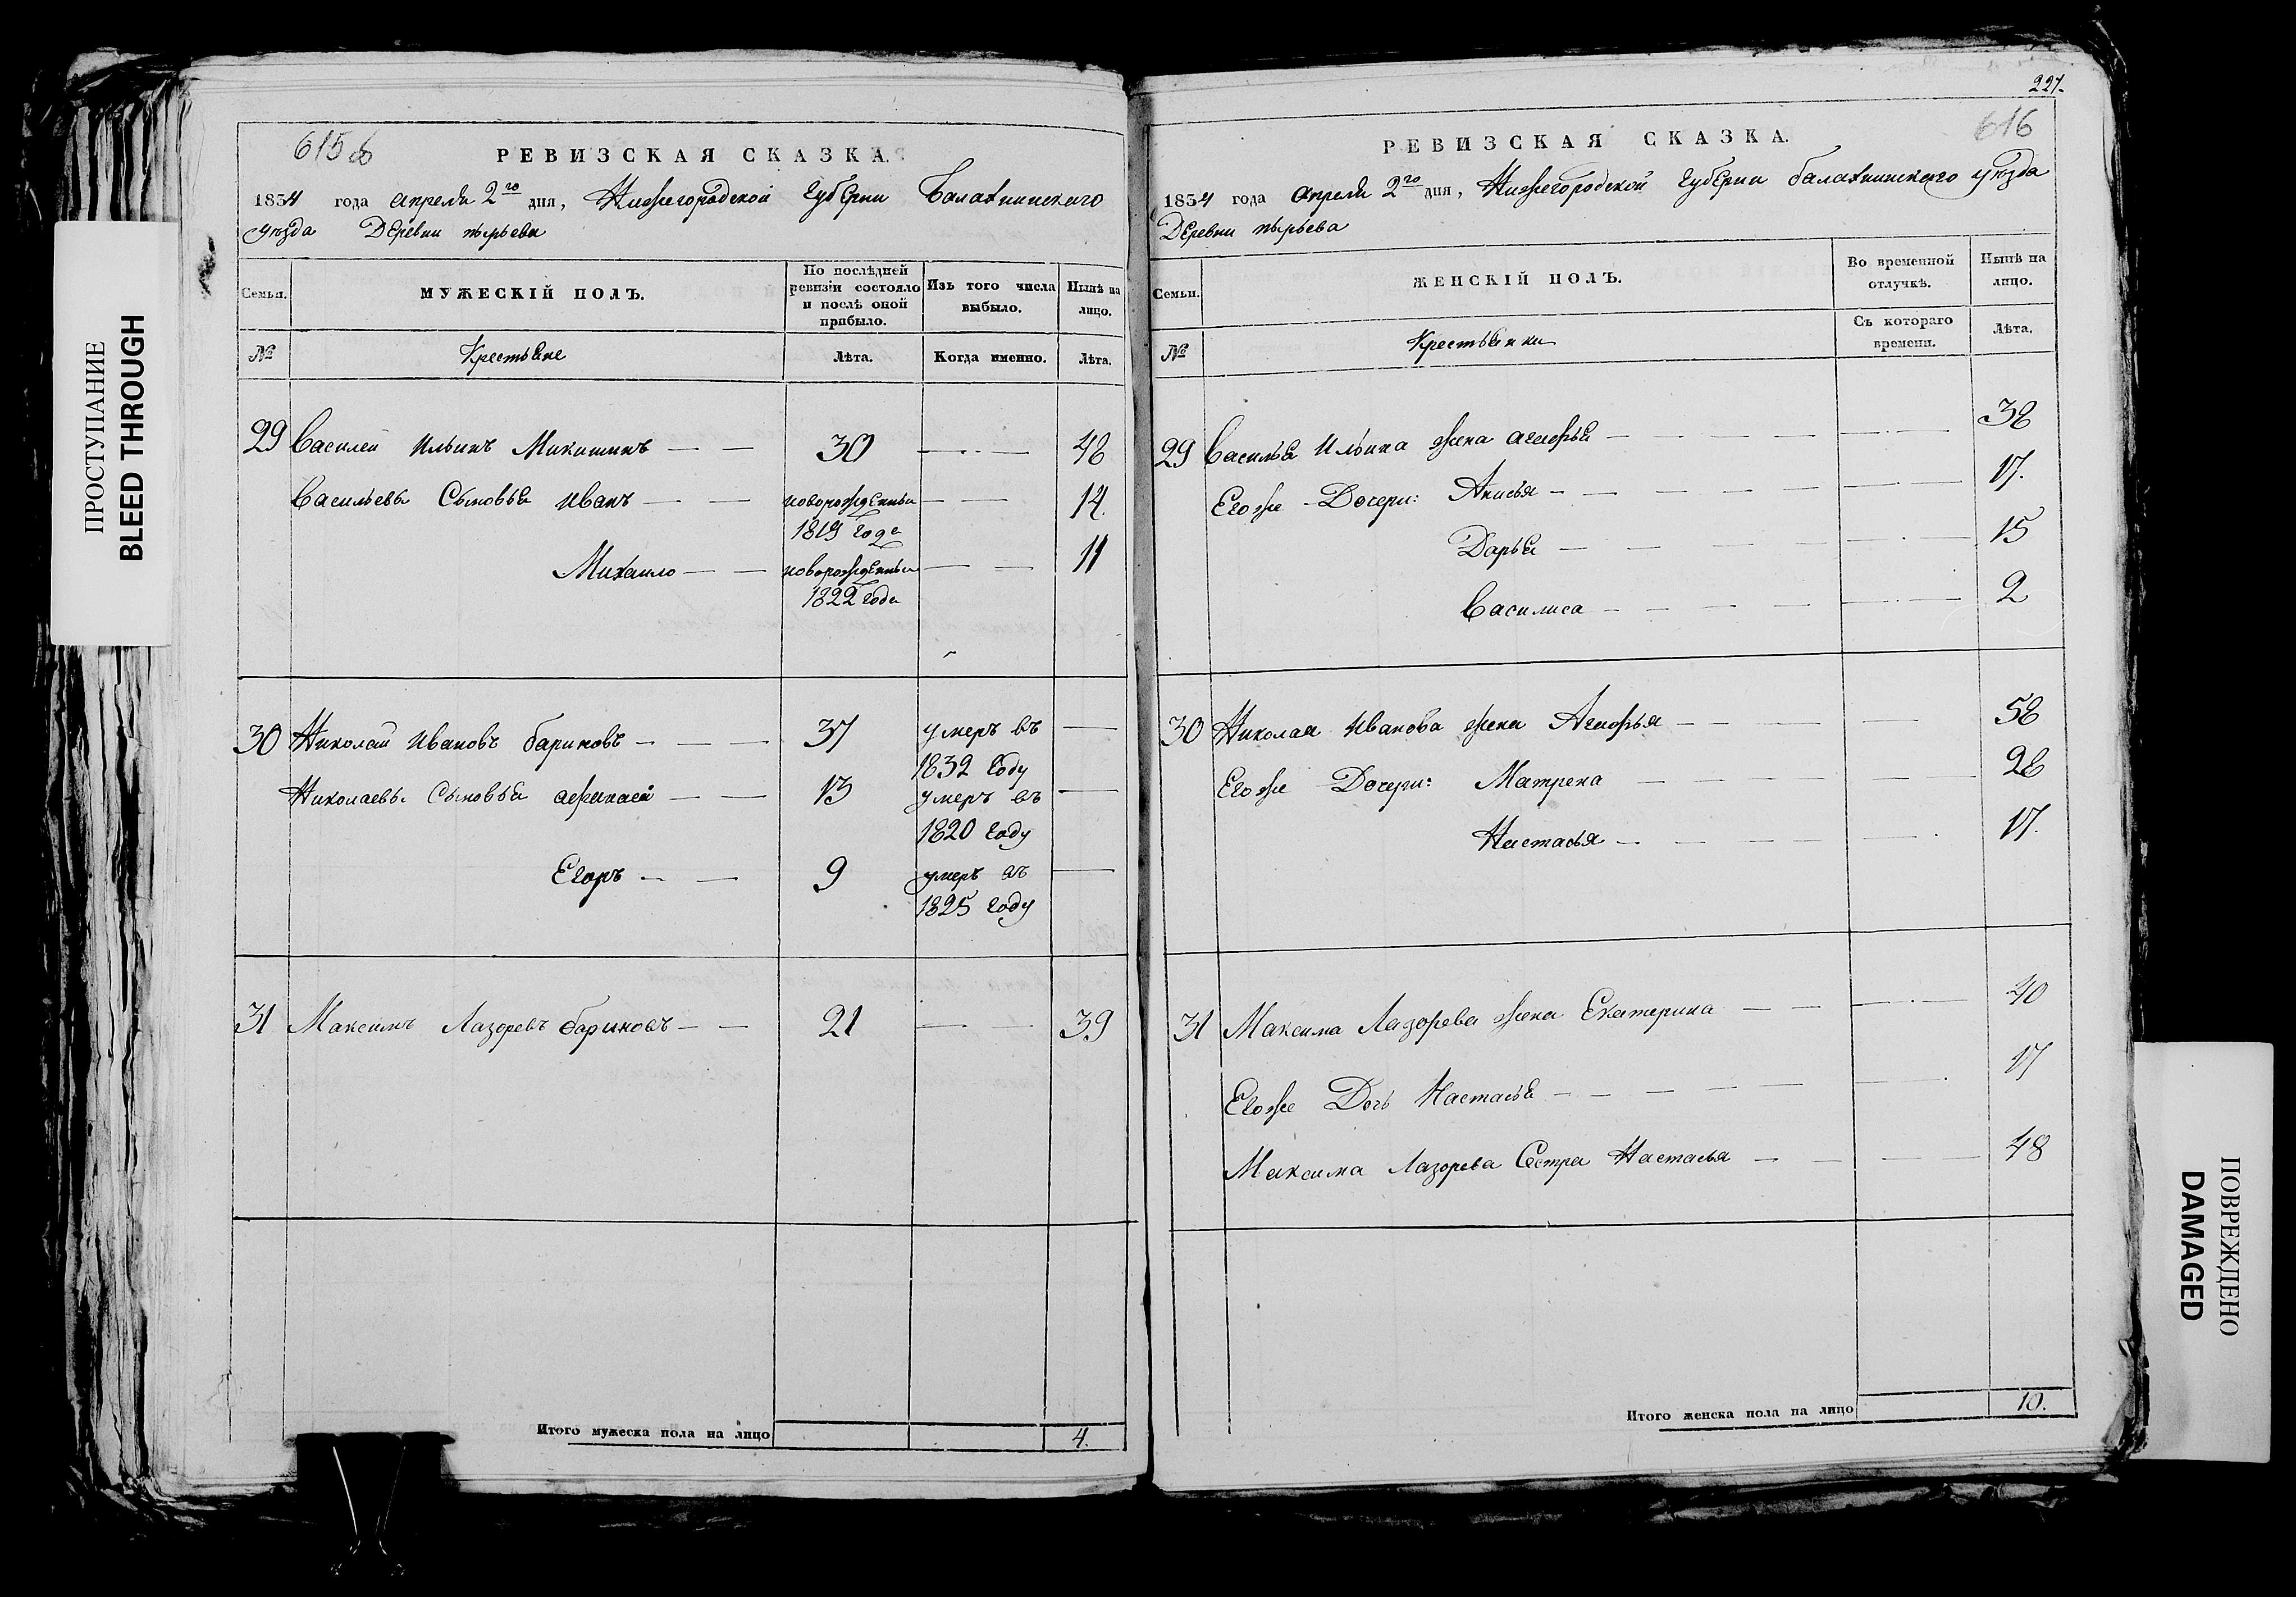 ПРОСТУПАНИЕ
BLEED THROUGH
615 об
РЕВИЗСКАЯ СКАЗКА.
1834 года апреля 2го дня, Нижегородской губернии Балахнинскаго
уѣзда Деревни пырьева
Семьи.
МУЖЕСКІЙ ПОЛЪ.
По послѣдней
ревизіи состояло
и послѣ оной
прибыло.
Изъ того числа
выбыло.
Нынѣ на
лицо.
№ Крестьяне Лѣта. Когда именно. Лѣта.
29 Василей Ильинъ Микишинъ — — 30 — — 48
Васильевы Сыновья иванъ — — новорожденный — — 14.
1819 года
Михаило — — новорожденный — — 11
1822 года
30 Николай Ивановъ бариновъ — — — 37 умеръ въ —
1832 году
Николаевы Сыновья афанасей — — 13 умеръ въ —
1820 году
Егоръ — — 9 умеръ въ —
1825 году
31 Максимъ Лазоревъ бариновъ — — 21 — — 39
Итого мужеска пола на лицо 4.
227.
616
РЕВИЗСКАЯ СКАЗКА.
1834 года апреля 2го дня, Нижегородской губернии балахнинскаго уѣзда
Деревни пырьева
Семьи.
ЖЕНСКІЙ ПОЛЪ.
Во временной
отлучкѣ.
Нынѣ на
лицо.
№ Крестьянки
Съ котораго
времени.
Лѣта.
29 Василья Ильина жена агафья — — — — — 38
Егоже Дочери: Анисья — — — — — 17.
Дарья — — — — — 15
Василиса — — — — — 2
30 Николая Иванова жена Агафья — — — — — 58
Егоже Дочери: Матрена — — — — 28
Настасья — — — — — 17.
31 Максима Лазорева жена Екатерина — — — — 40
Егоже Дочь Настасья — — — — 17
Максима Лазорева Сестра Настасья — — — — 48
Итого женска пола на лицо 10.
ПОВРЕЖДЕНО
DAMAGED